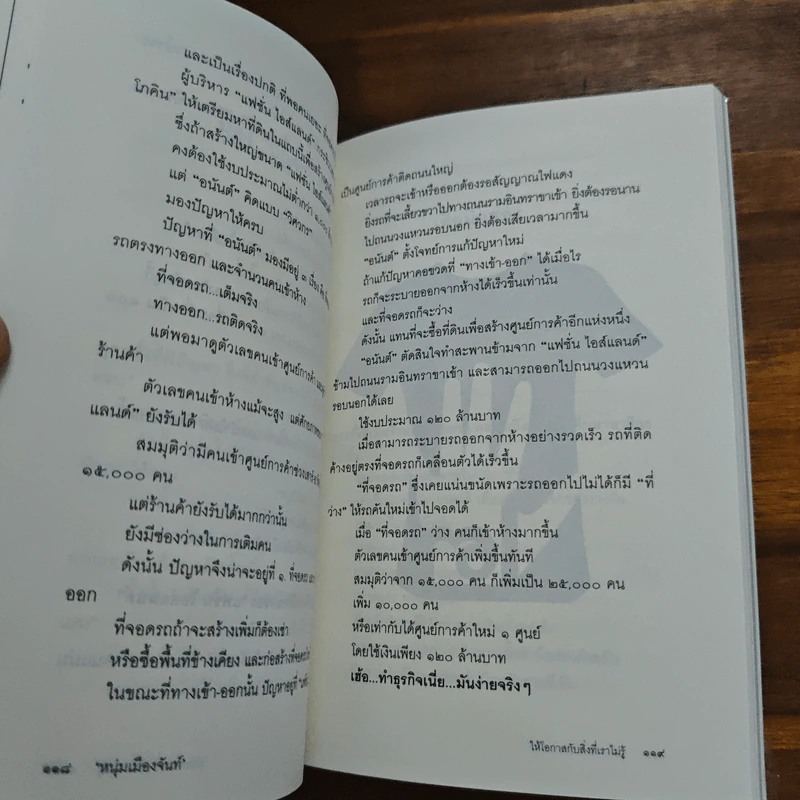 และเป็นเรื่องปกติ ที่พอคนเยอะ
ผู้บริหาร “แฟชั่น ไอส์แลนด์”
โภคิน” ให้เตรียมหาที่ดินในแถบนี้เพื่อสร้าง
ซึ่งถ้าสร้างใหญ่ขนาด “แฟชั่น ไอส์แลนด์”
คงต้องใช้งบประมาณไม่ต่ำกว่า
แต่ “อนันต์” คิดแบบ “วิศวกร”
มองปัญหาให้ครบ
ปัญหาที่ “อนันต์” มองมีอยู่ ๓ เรื่อง คือ
รถตรงทางออก และจำนวนคนเข้าห้าง
ที่จอดรถ...เต็มจริง
ทางออก...รถติดจริง
แต่พอมาดูตัวเลขคนเข้าศูนย์การค้า
ร้านค้า
ตัวเลขคนเข้าห้างแม้จะสูง แต่ศักยภาพของ
แลนด์” ยังรับได้
สมมุติว่ามีคนเข้าศูนย์การค้าช่วง
๑๕,๐๐๐ คน
แต่ร้านค้ายังรับได้มากกว่านั้น
ยังมีช่องว่างในการเติมคน
ดังนั้น ปัญหาจึงน่าจะอยู่ที่ ๑. ที่จอดรถ
ออก
ที่จอดรถถ้าจะสร้างเพิ่มก็ต้องเช่า
หรือซื้อพื้นที่ข้างเคียง และก่อสร้างที่จอดรถ
ในขณะที่ทางเข้า-ออกนั้น ปัญหาอยู่ที่
๑๑๘ ‘หนุ่มเมืองจันท์’
เป็นศูนย์การค้าติดถนนใหญ่
เวลารถจะเข้าหรือออกต้องรอสัญญาณไฟแดง
ยิ่งรถที่จะเลี้ยวขวาไปทางถนนรามอินทราขาเข้า ยิ่งต้องรอนาน
ไปถนนวงแหวนรอบนอก ยิ่งต้องเสียเวลามากขึ้น
“อนันต์” ตั้งโจทย์การแก้ปัญหาใหม่
ถ้าแก้ปัญหาคอขวดที่ “ทางเข้า-ออก” ได้เมื่อไร
รถก็จะระบายออกจากห้างได้เร็วขึ้นเท่านั้น
และที่จอดรถก็จะว่าง
ดังนั้น แทนที่จะซื้อที่ดินเพื่อสร้างศูนย์การค้าอีกแห่งหนึ่ง
“อนันต์” ตัดสินใจทำสะพานข้ามจาก “แฟชั่น ไอส์แลนด์”
ข้ามไปถนนรามอินทราขาเข้า และสามารถออกไปถนนวงแหวน
รอบนอกได้เลย
ใช้งบประมาณ ๑๒๐ ล้านบาท
เมื่อสามารถระบายรถออกจากห้างอย่างรวดเร็ว รถที่ติด
ค้างอยู่ตรงที่จอดรถก็เคลื่อนตัวได้เร็วขึ้น
“ที่จอดรถ” ซึ่งเคยแน่นขนัดเพราะรถออกไปไม่ได้ก็มี “ที่
ว่าง” ให้รถคันใหม่เข้าไปจอดได้
เมื่อ “ที่จอดรถ” ว่าง คนก็เข้าห้างมากขึ้น
ตัวเลขคนเข้าศูนย์การค้าเพิ่มขึ้นทันที
สมมุติว่าจาก ๑๕,๐๐๐ คน ก็เพิ่มเป็น ๒๕,๐๐๐ คน
เพิ่ม ๑๐,๐๐๐ คน
หรือเท่ากับได้ศูนย์การค้าใหม่ ๑ ศูนย์
โดยใช้เงินเพียง ๑๒๐ ล้านบาท
เฮ้อ...ทำธุรกิจเนี่ย...มันง่ายจริงๆ
ให้โอกาสกับสิ่งที่เราไม่รู้ ๑๑๙